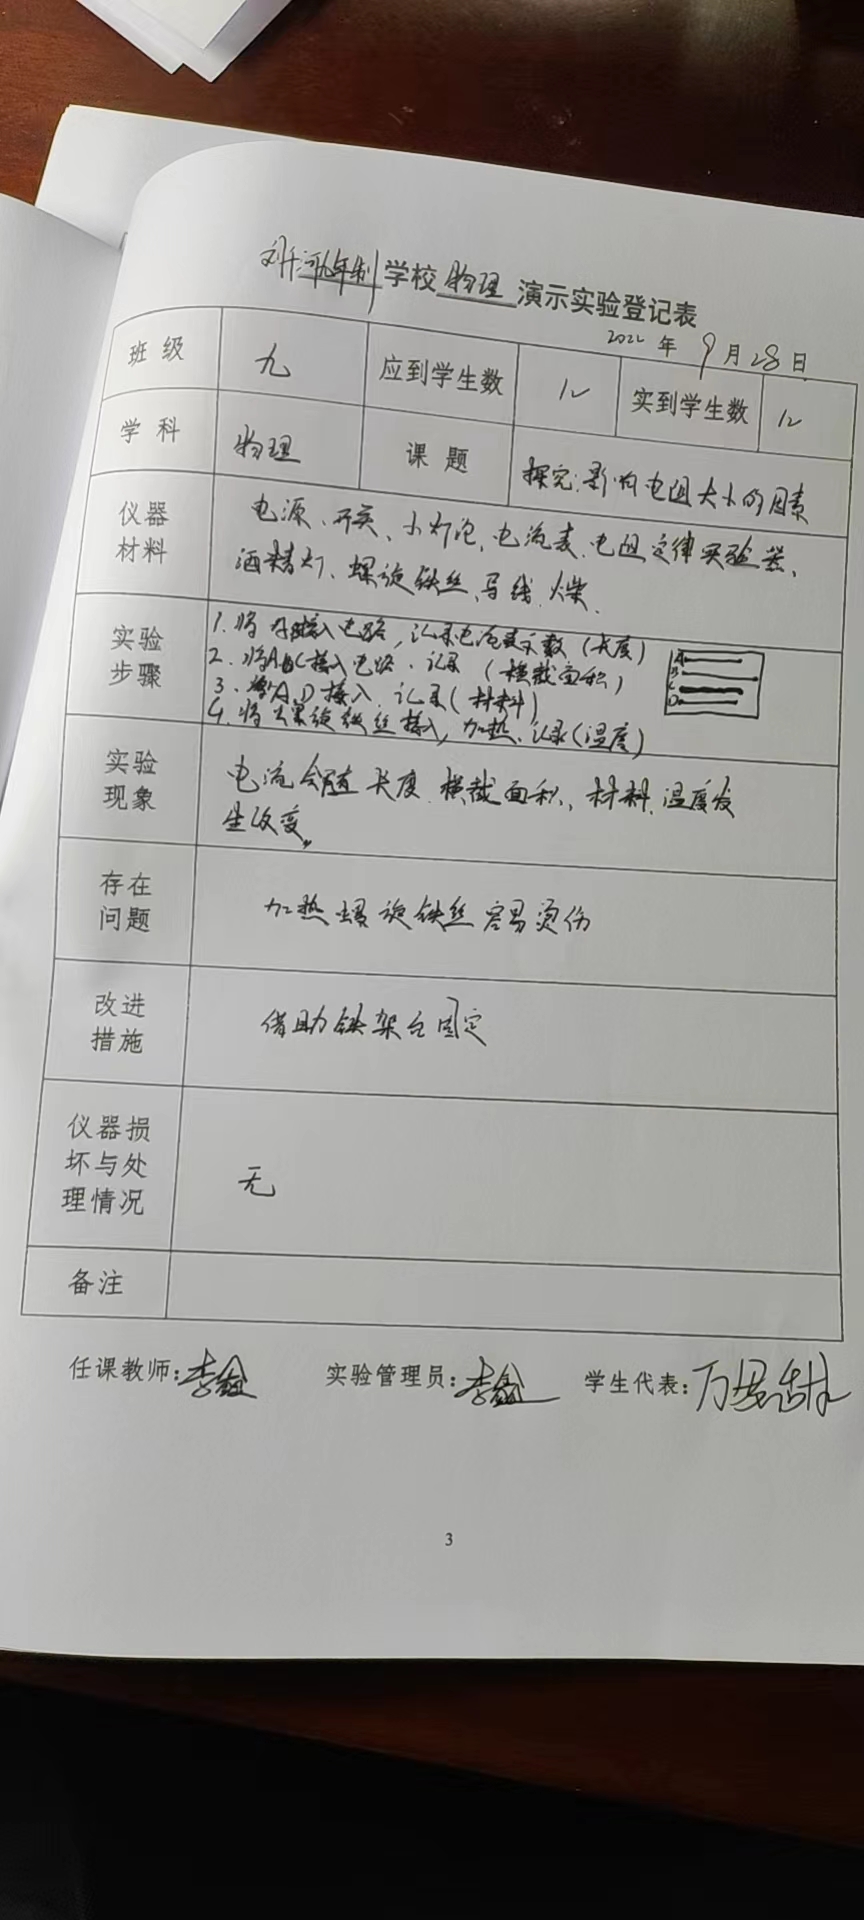 刘千河九年制学校物理演示实验登记表
2022年9月28日
班级 九 应到学生数 12 实到学生数 12
学科 物理 课题 探究:影响电阻大小的因素
仪器材料 电源、开关、小灯泡、电流表、电阻定律实验器、
酒精灯、螺旋铁丝、导线、火柴.
实验步骤 1.将 接入电路,记录电流表示数(长度)
2.将A、C接入电路.记录(横截面积)
3.将A、D接入.记录(材料)
4.将 螺旋铁丝接入,加热、记录(温度)
A
B
C
D
实验现象 电流会随长度.横截面积、材料.温度发
生改变。
存在问题 加热螺旋铁丝容易烫伤
改进措施 借助铁架台固定
仪器损坏与处理情况 无
备注
任课教师:李鑫 实验管理员:李鑫 学生代表:万
3